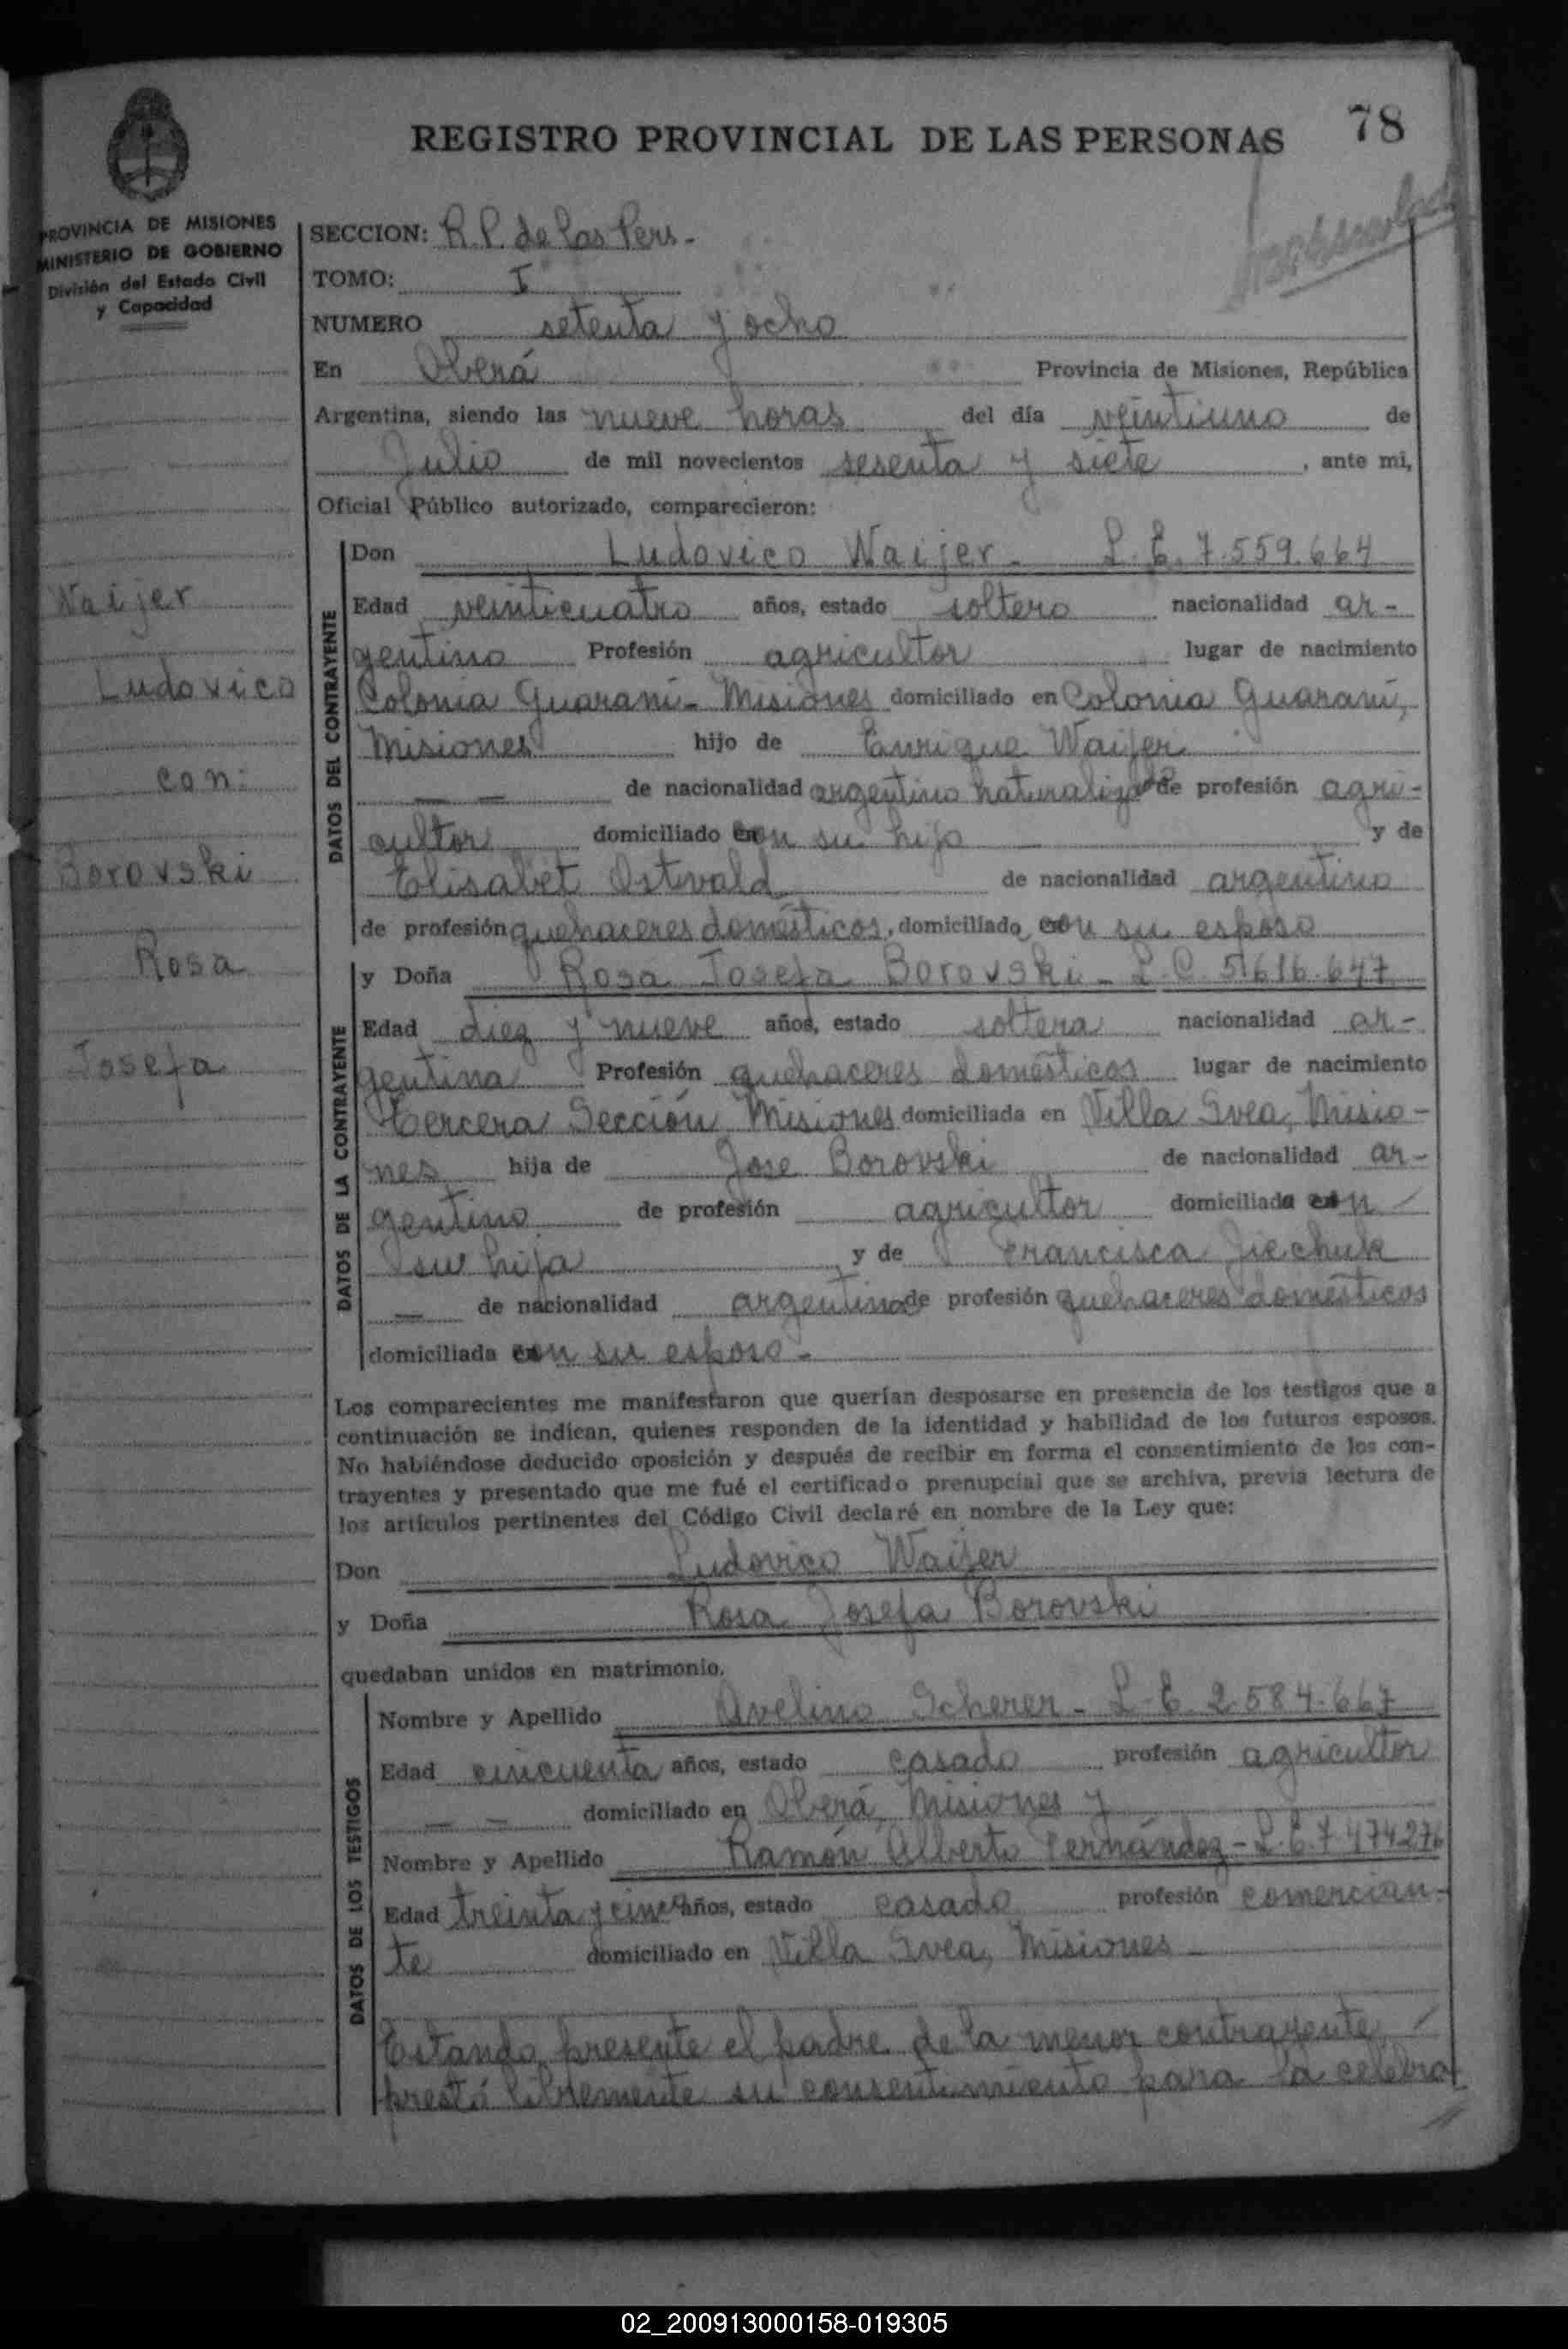 REGISTRO PROVINCIAL DE LAS PERSONAS 78
PROVINCIA DE MISIONES
MINISTERIO DE GOBIERNO
División del Estado Civil
y Capacidad
SECCION: R. P. de las Pers.-
TOMO: I
NUMERO setenta y ocho
En Oberá Provincia de Misiones, República
Argentina, siendo las nueve horas del día veintiuno de
Julio de mil novecientos sesenta y siete, ante mi,
Oficial Público autorizado, comparecieron:
Waijer
Ludovico
con:
Borovski
Rosa
Josefa
DATOS DEL CONTRAYENTE
Don Ludovico Waijer - L. E. 7.559.664
Edad veinticuatro años, estado soltero nacionalidad ar-
gentino Profesión agricultor lugar de nacimiento
Colonia Guaraní - Misiones domiciliado en Colonia Guaraní,
Misiones hijo de Enrique Waijer
— — de nacionalidad argentino naturalizado de profesión agri-
cultor domiciliado con su hijo y de
Elisabet Ostvald de nacionalidad argentina
de profesión quehaceres domésticos, domiciliado con su esposo
DATOS DE LA CONTRAYENTE
y Doña Rosa Josefa Borovski - L. C. 5.616.647
Edad diez y nueve años, estado soltera nacionalidad ar-
gentina Profesión quehaceres domésticos lugar de nacimiento
Tercera Sección Misiones domiciliada en Villa Svea, Misio-
nes, hija de Jose Borovski de nacionalidad ar-
gentino de profesión agricultor domiciliada con
su hija y de Francisca
— de nacionalidad argentina de profesión quehaceres domésticos
domiciliada con su esposo -
Los comparecientes me manifestaron que querían desposarse en presencia de los testigos que a
continuación se indican, quienes responden de la identidad y habilidad de los futuros esposos.
No habiéndose deducido oposición y después de recibir en forma el consentimiento de los con-
trayentes y presentado que me fué el certificado prenupcial que se archiva, previa lectura de
los artículos pertinentes del Código Civil declaré en nombre de la Ley que:
Don Ludovico Waijer
y Doña Rosa Josefa Borovski
quedaban unidos en matrimonio.
DATOS DE LOS TESTIGOS
Nombre y Apellido Avelino Scherer - L. E. 2.584.667
Edad cincuenta años, estado casado profesión agricultor
— — domiciliado en Oberá, Misiones y
Nombre y Apellido Ramón Alberto Fernández - L. E. 7.474.276
Edad treinta y cinco años, estado casado profesión comercian-
te domiciliado en Villa Svea, Misiones -
Estando presente el padre de la menor contrayente,
prestó libremente su consentimiento para la celebra-
02_200913000158-019305